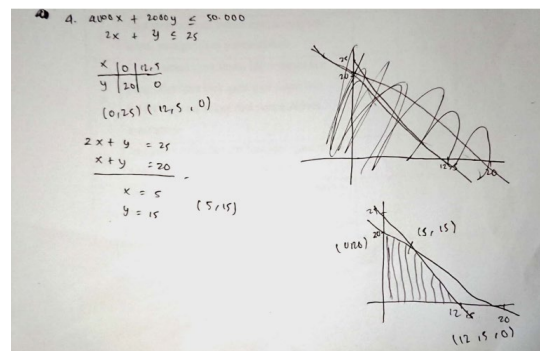 4. 4000x + 2000y ≤ 50.000
2x + y ≤ 25
x | 0 | 12,5
y | 20 | 0
(0,25) (12,5,0)
2x + y = 25
x + y = 20
-
x = 5
y = 15
(5,15)
25
20
12,5
20
25
20
(0,20)
(5,15)
12,5
20
(12,5,0)